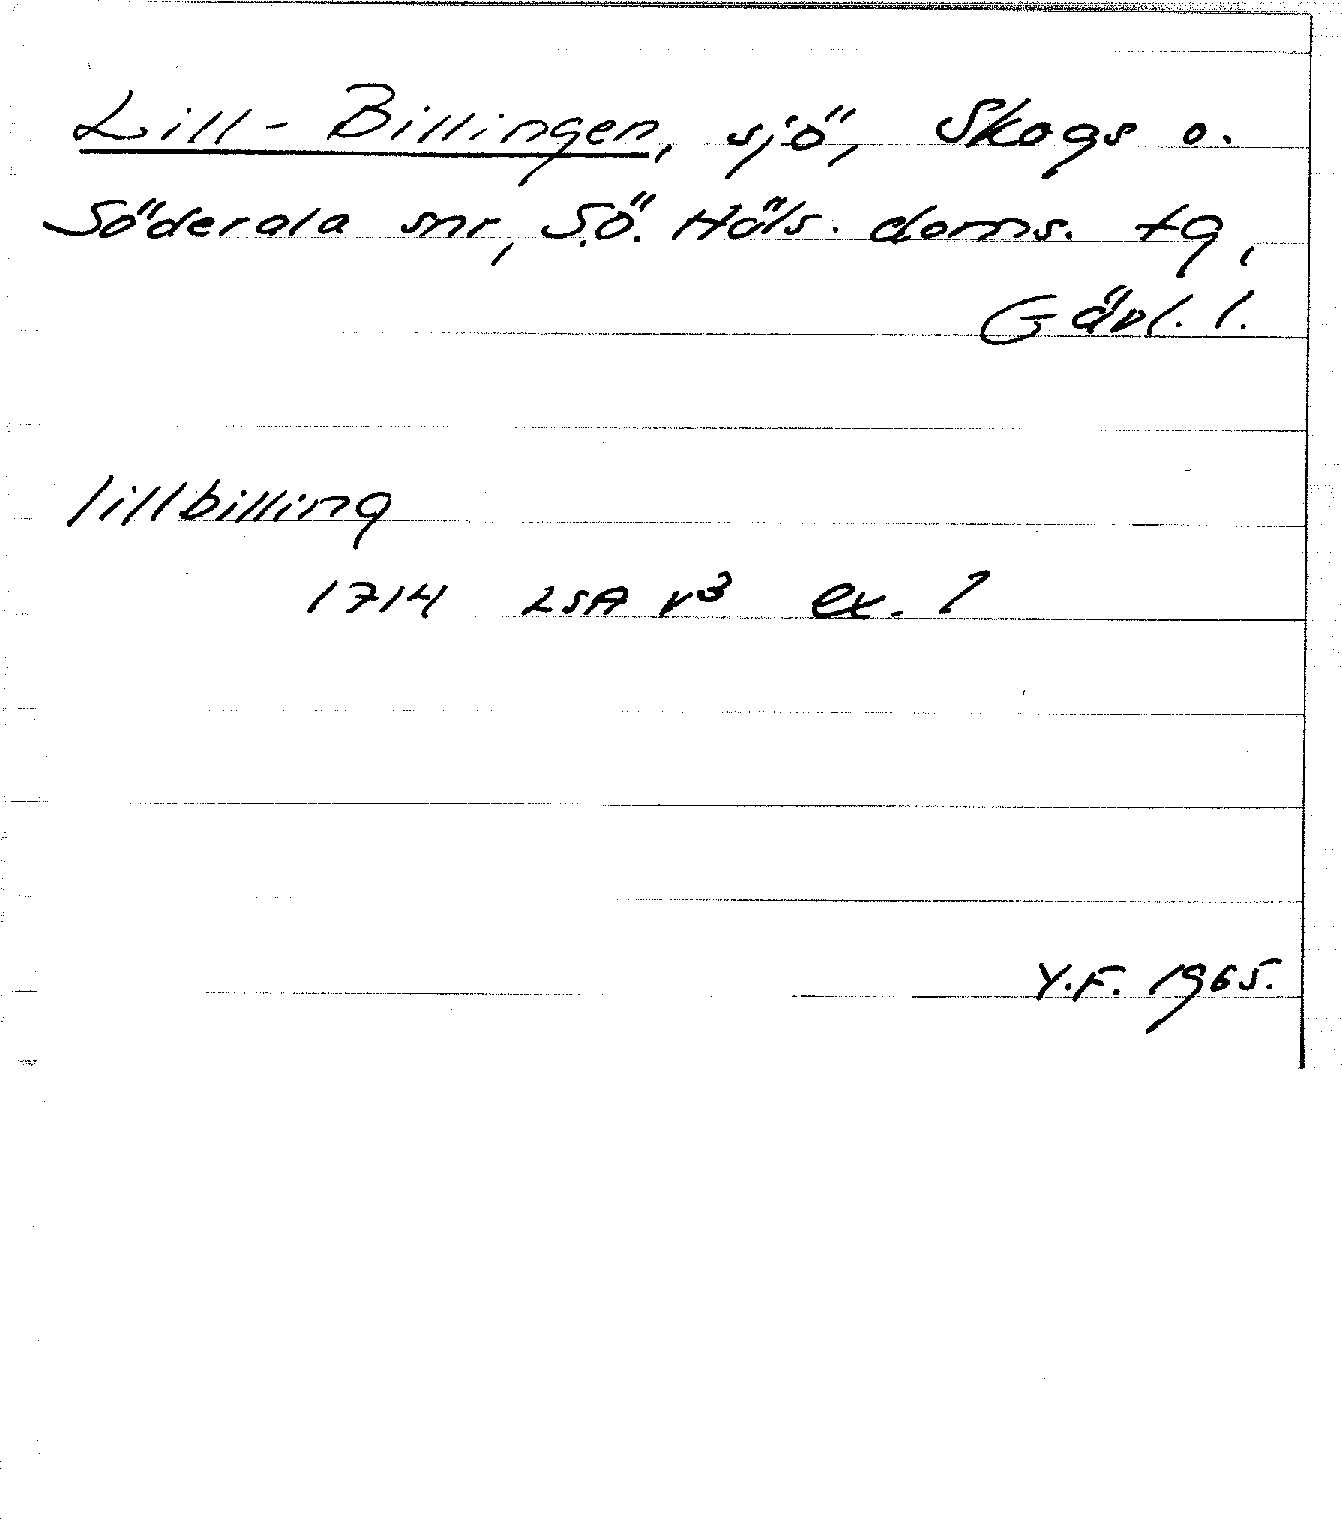 Lill-Billingen, sjö, Skogs o.
Söderala snr, S.Ö. Häls. doms. tg,
Gävl. l.
lillbilling
1714 LSA v³ ex. 1
Y.F. 1965.